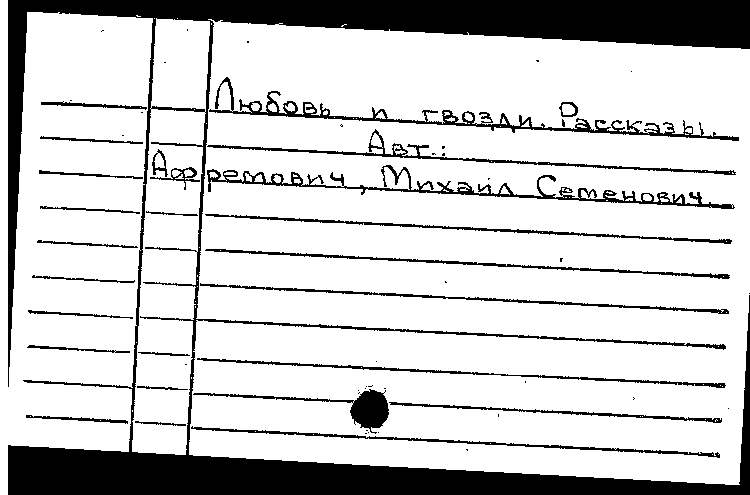 Любовь и гвозди. Рассказы.
Авт.:
Афремович, Михаил Семенович.